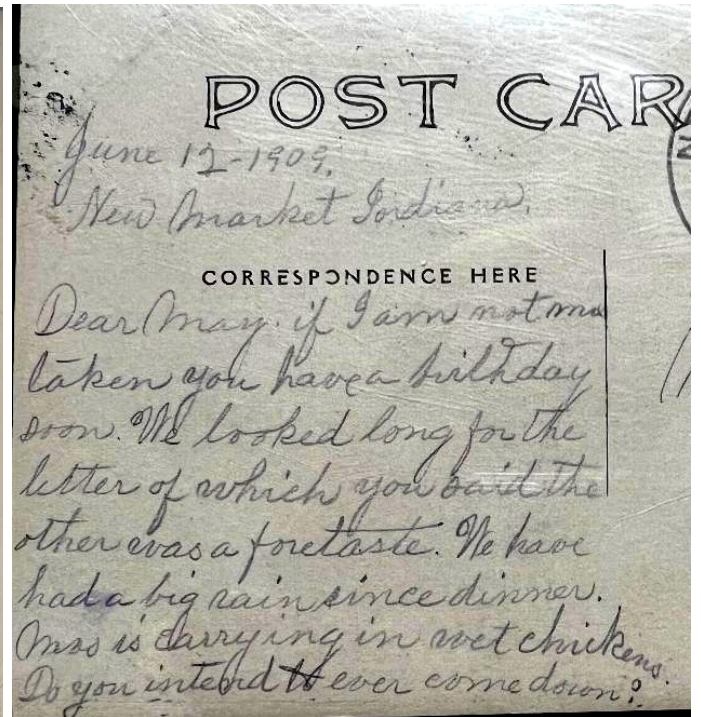 POST CAR
June 12-1909.
New Market Indiana.
CORRESPONDENCE HERE
Dear May. if I am not mis
taken you have a birthday
soon. We looked long for the
letter of which you said the
other was a foretaste. We have
had a big rain since dinner.
is carrying in wet chickens.
Do you intend to ever come down?